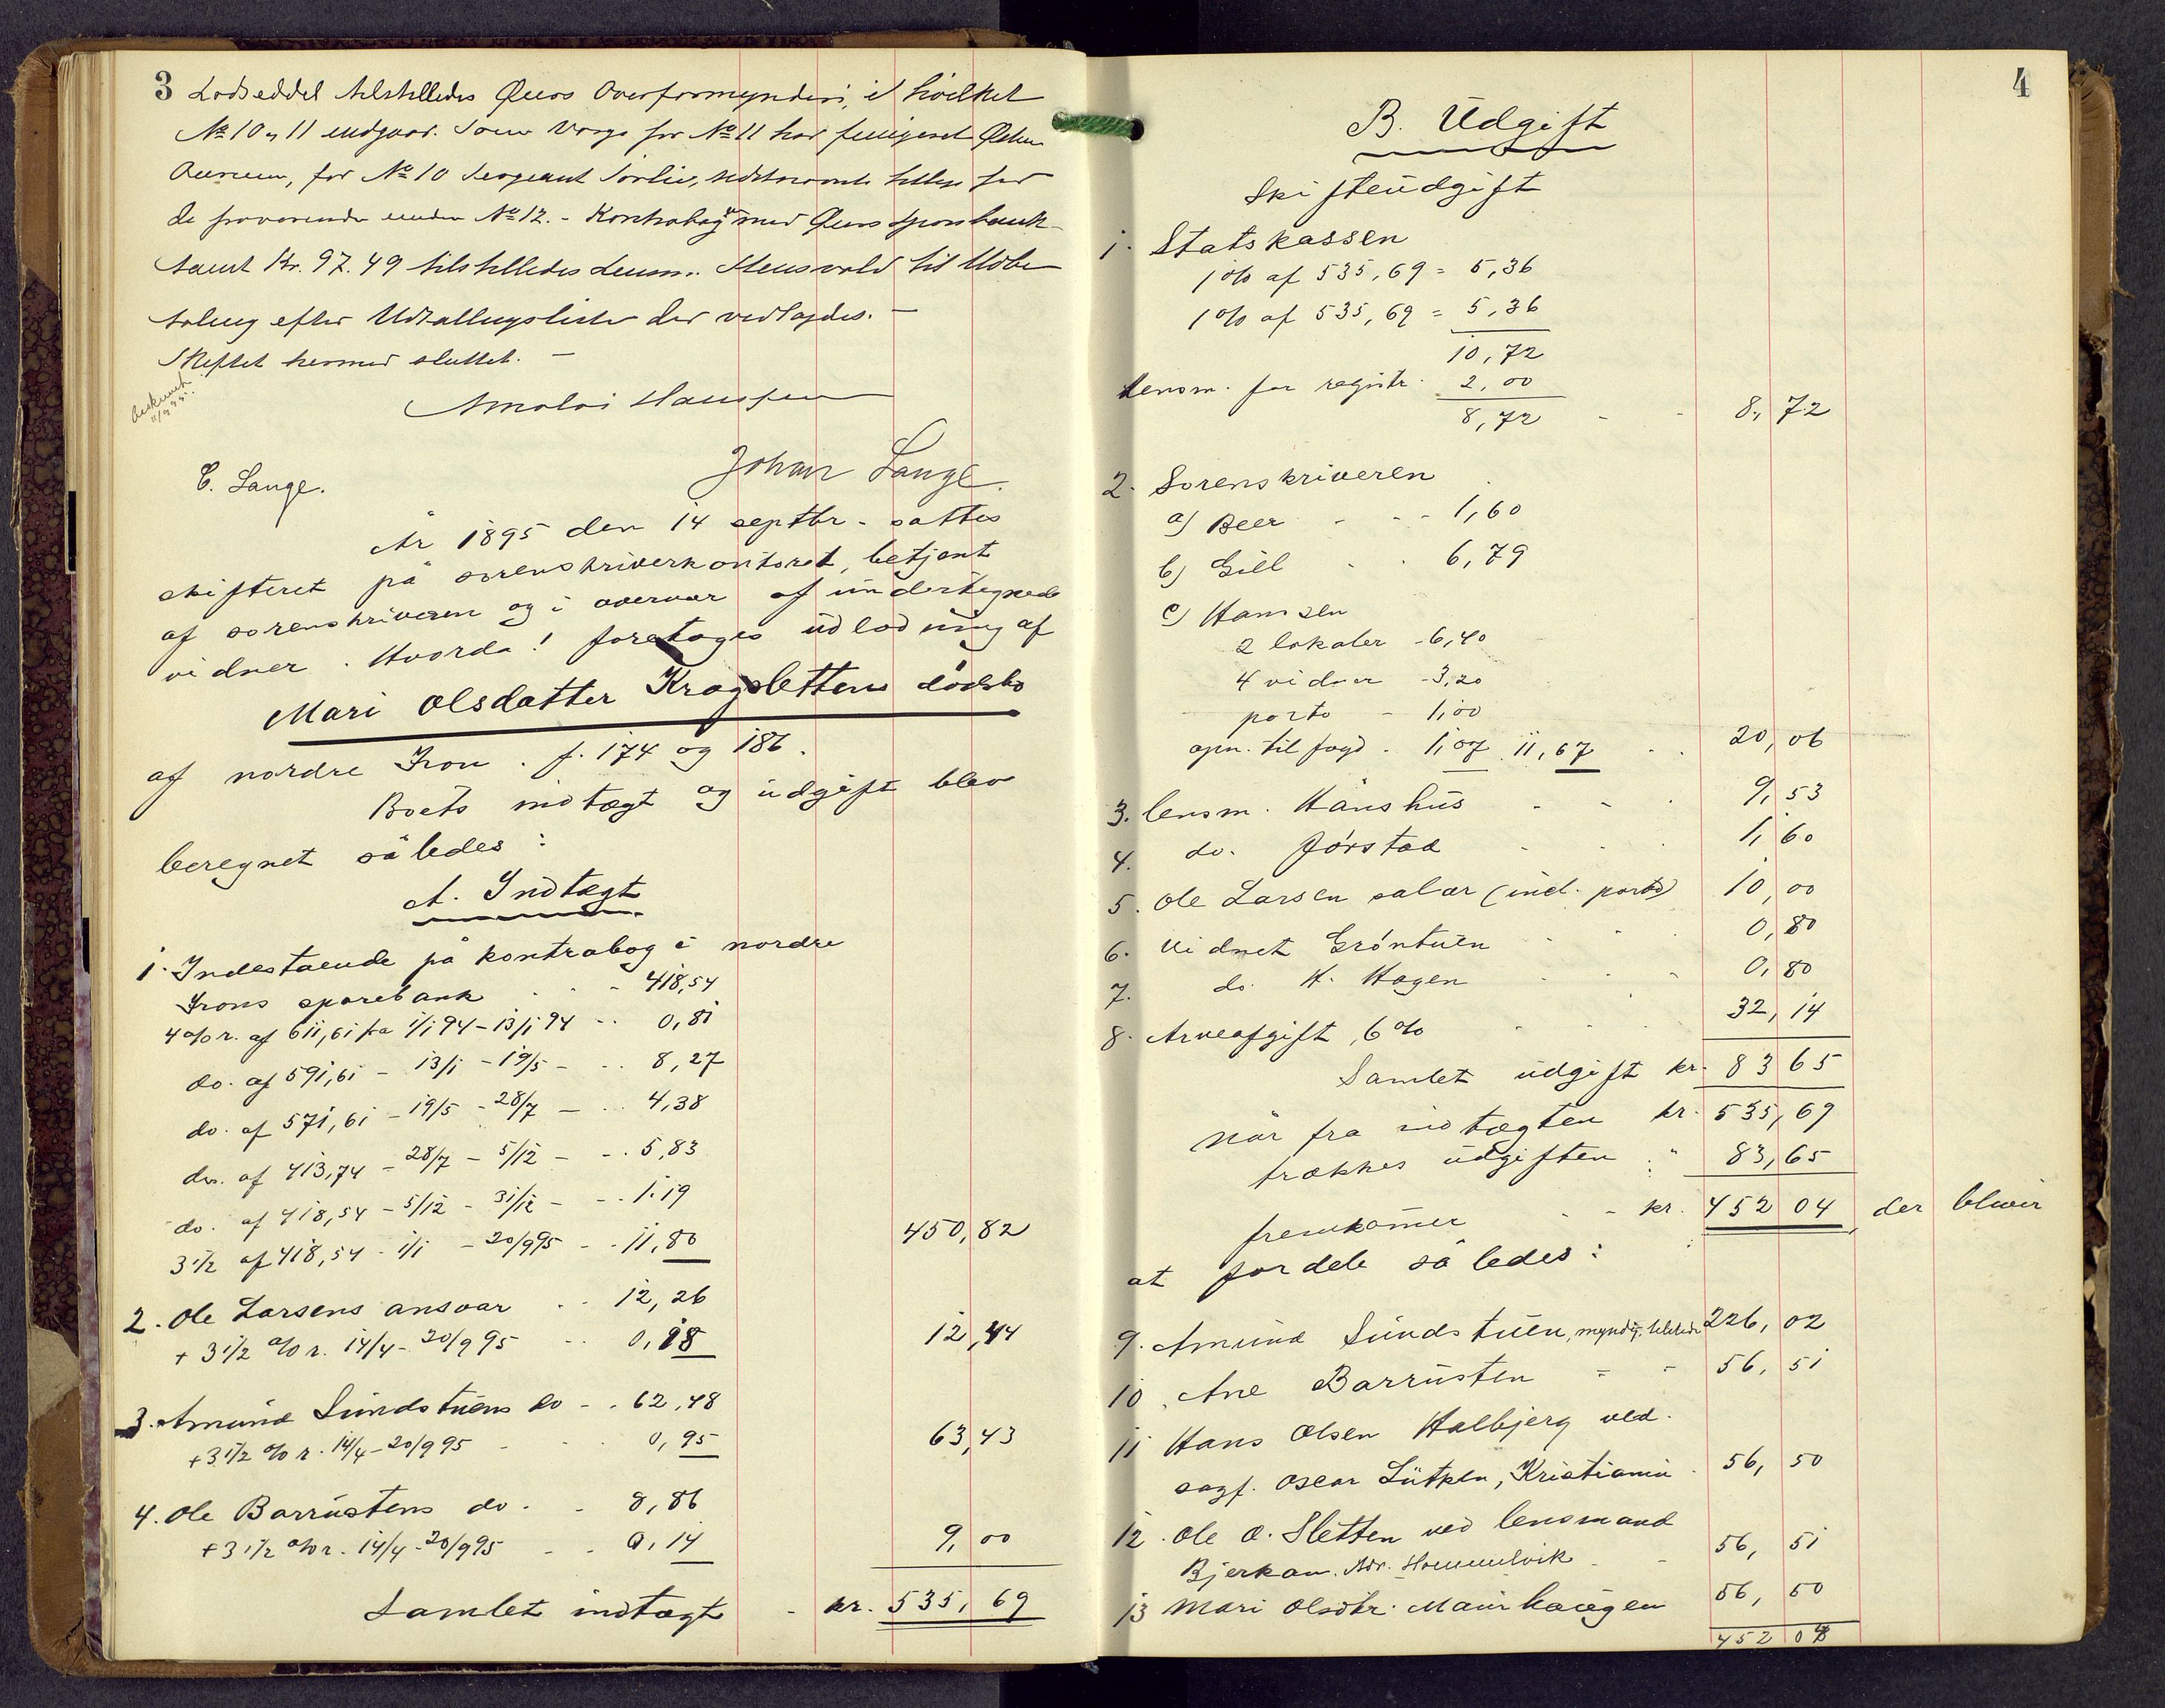 3
Lodseddel tilstilledes Øiers Overformynderi, i hvilket
No 10 og 11 indgaar. Som Værge for No 11 har fungeret
for No 10 Sergeant Sørlie, sidstnævnte tillige for
de fraværende under No 12. - Kontrabog med Øiers Sparebank
samt Kr. 97.49 tilstilledes Lensm. Stensvold til Udbe
taling efter Udtallingsliste der vedlagdes. -
Skiftet hermed sluttet. -
Amaloi Haussen
Johan Lange.
C. Lange.
År 1895 den 14 septbr. sattes
skifteret på sorenskriverkontoret, betjent
af sorenskriveren og i overvær af undertegnede
vidner. Hvorda! foretoges udlodning af
Mari Olsdatter Kragslettens dødsbo
af nordre Fron. f. 174 og 186.
Boets indtægt og udgift blev
beregnet således:
A. Indtægt
1. Indestaende på kontrabog i nordre
Frons sparebank - 418,54
4 o/o r. af 611,61 fra 1/1 94 - 13/1 94 - 0,81
do. af 591,61 - 13/1 - 19/5 - 8,27
do. af 571,61 - 19/5 - 28/7 - 4,38
do. af 413,74 - 28/7 - 5/12 - 5,83
do. af 418,54 - 5/12 - 31/12 - 1,19
3 1/2 af 418,54 - 1/1 - 20/9 95 - 11,80 450,82
2. Ole Larsens ansvar 12,26
+ 3 1/2 o/o r. 14/4 - 20/9 95 0,18 12,44
3. Amund Sundstuens do - 62,48
+ 3 1/2 o/o r. 14/4 - 20/9 95 - 0,95 63,43
4. Ole Barrustens do. - 8,86
+ 3 1/2 o/o r. 14/4 - 20/9 95 - 0,14 9,00
Samlet indtægt - kr. 535,69
4
B. Udgift
Skifteudgift
1. Statskassen
1 o/o af 535,69 = 5,36
1 o/o af 535,69 = 5,36
10,72
lensm. for registr. 2,00
8,72 - - 8,72
2. Sorenskriveren
a) Beer - - - 1,60
b) Gill - - 6,79
c) Hamsen
2 lokaler - 6,40
4 vidner - 3,20
porto - 1,00
opn. til fogd - 1,07 11,67 20,06
3. lensm. Hånshus - - 9,53
4. do. Jørstad 1,60
5. Ole Larsen salær (incl. porto) 10,00
6. Vidnet Grøntuen 0,80
7. do. H. Hagen 0,80
8. Arveafgift, 6 o/o 32,14
Samlet udgift kr. 83 65
Når fra indtægten kr. 535,69
trækkes udgiften " 83,65
fremkommer - - kr. 452 04, der bliver
at fordele således:
9. Amund Sundstuen, myndig, tilstede 226,02
10. Ane Barrusten " - 56,51
11 Hans Olsen Halbjerg ved.
sagf. Oscar Lütken, Kristiania 56,50
12. Ole O. Sletten ved lensmand
Bjerkan. Adr. Hommelvik - - 56,51
13 Mari Olsdtr. Maurhaugen 56,50
452 04